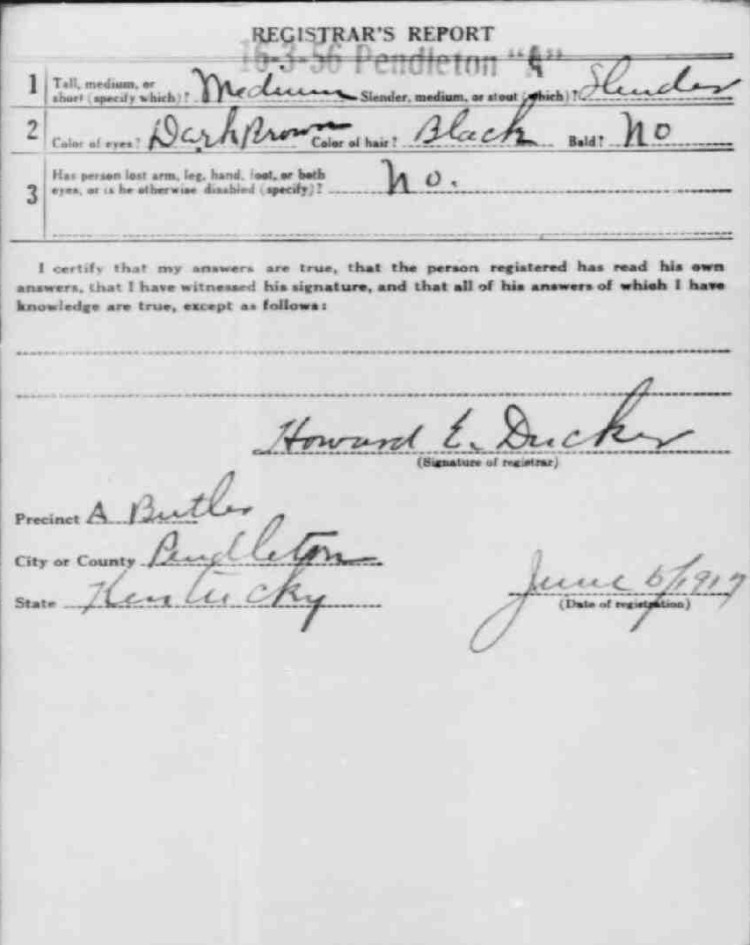 REGISTRAR'S REPORT
16-3-56 Pendleton "A"
1 Tall, medium, or short (specify which)? Medium Slender, medium, or stout (which)? Slender
2 Color of eyes? Dark Brown Color of hair? Black Bald? No
3 Has person lost arm, leg, hand, foot, or both
eyes, or is he otherwise disabled (specify)? No.
I certify that my answers are true, that the person registered has read his own
answers, that I have witnessed his signature, and that all of his answers of which I have
knowledge are true, except as follows:
Howard E. Ducker
(Signature of registrar)
Precinct A Butler
City or County Pendleton
State Kentucky
June 5/1917
(Date of registration)